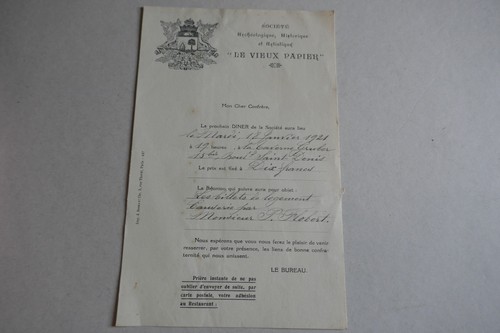 SOCIÉTÉ
Archéologique, Historique
et Artistique
"LE VIEUX PAPIER"
Mon Cher Confrère,
Le prochain DINER de la Société aura lieu
le Mardi 12 Janvier 1921
à 19 heures à la Taverne Gruber
15 bis Boul. Saint Denis
Le prix est fixé à Dix francs
La Réunion qui suivra aura pour objet :
Les billets de logement
Causerie par
Monsieur P. Flobert.
Nous espérons que vous nous ferez le plaisir de venir
resserrer, par votre présence, les liens de bonne confra-
ternité qui nous unissent.
LE BUREAU.
Prière instante de ne pas
oublier d'envoyer de suite, par
carte postale, votre adhésion
au Restaurant :